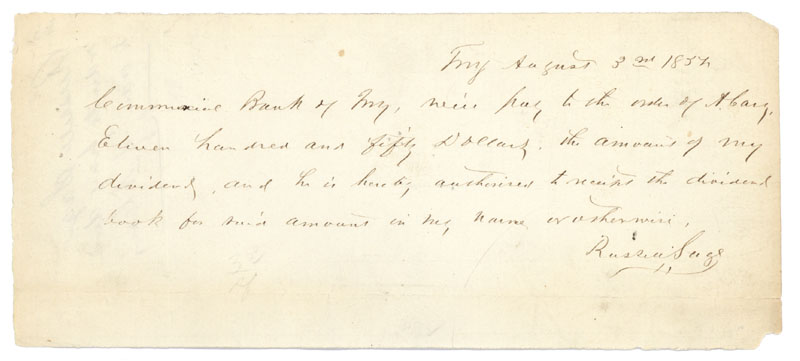 Troy August 3rd 185
Commercial Bank of Troy, will pay to the order of A. Cary,
Eleven hundred and fifty Dollars, the amount of my
dividend, and he is hereby authorised to receipt the dividend
book for said amount in my name or otherwise.
Russell Sage